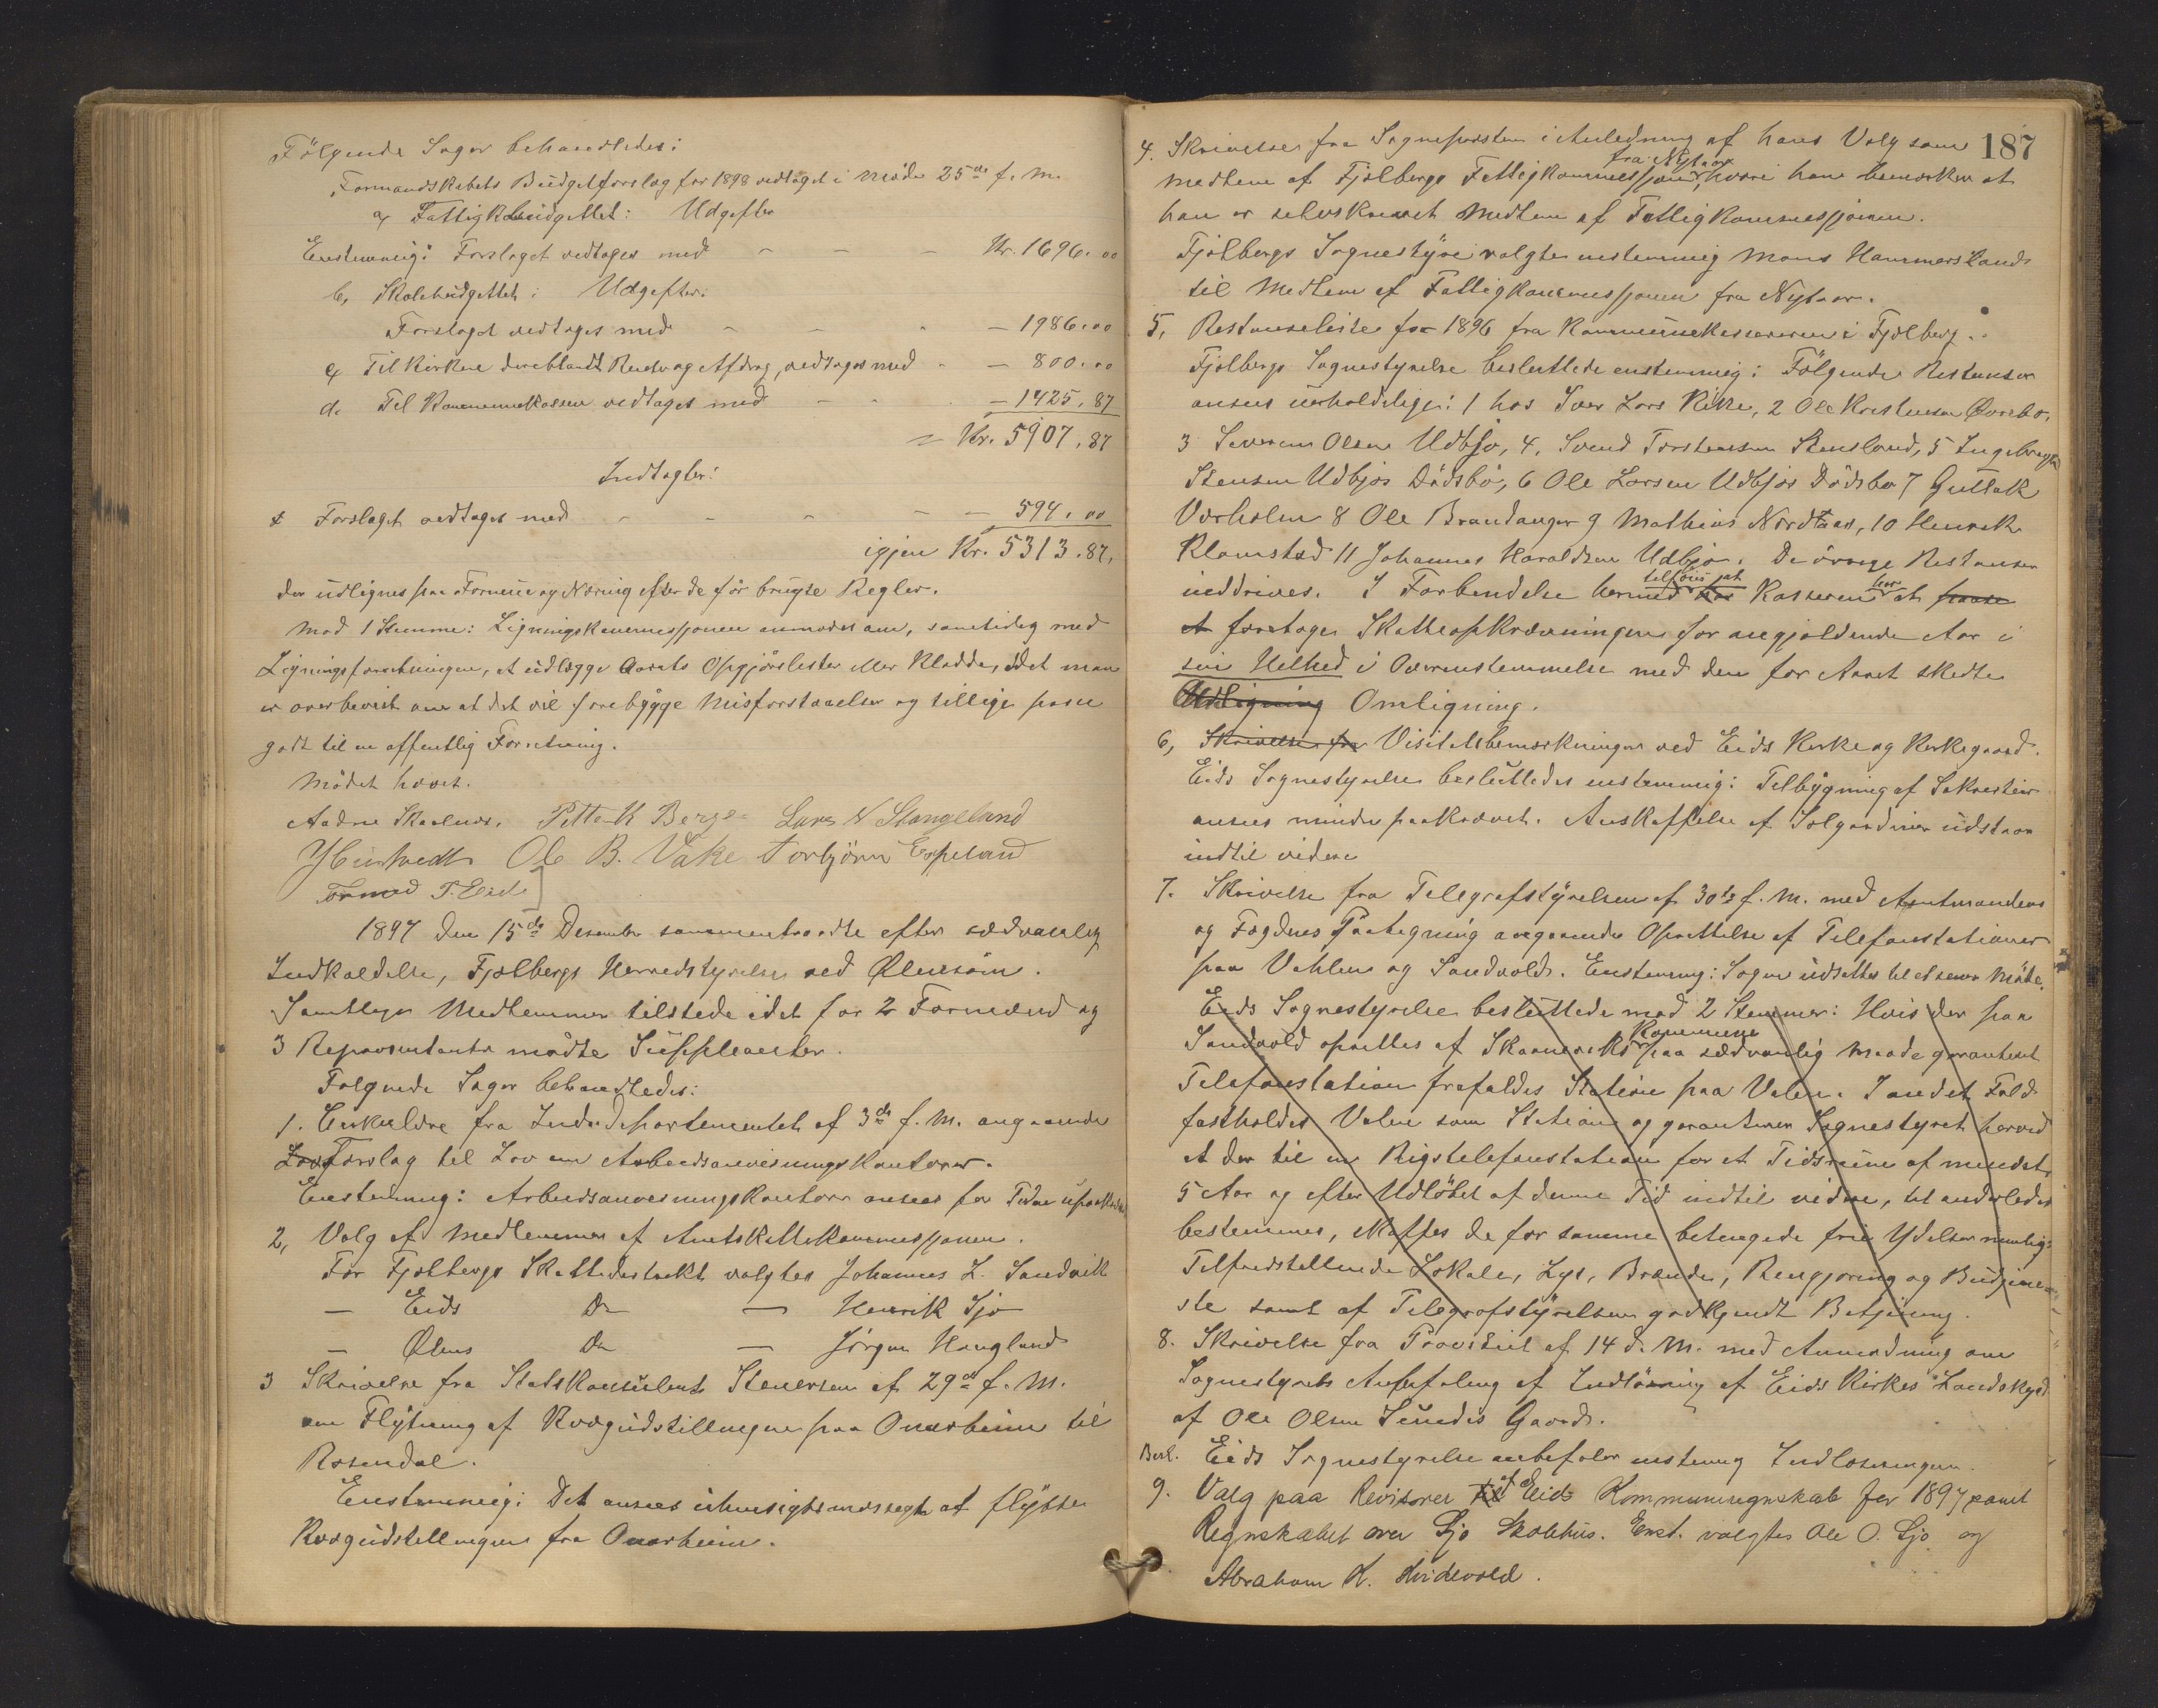 Følgende Sager behandledes:
Formandskabets Budgetforslag for 1898 vedtaget i Møde 25de f. M.
a, Fattigbudgettet: Udgifter
Enstemmig: Forslaget vedtages med - - - Kr. 1696.00
b, Skolebudgettet: Udgifter:
Forslaget vedtages med - - - - 1986.00
c, Til Kirkene derblandt Renter og Afdrag, vedtages med - - 800.00
d. Til Kommunekassen vedtages med - - - 1425,87
= Kr. 5907,87
Indtægter:
Forslaget vedtages med - - - - - 594,00
igjen Kr. 5313.87,
der udlignes paa Formue og Næring efter de før brugte Regler.
Mod 1 Stemme: Ligningskommissjonen anmodes om, samtidig med
Ligningsforretningen, at udlægge Aarets Opgjørslister eller Kladde, idet man
er overbevist om at det vil forebygge Misforstaaelser og tillige passe
godt til en offentlig Forretning.
Mødet hævet.
Aadne Skaalnes. Petter K Berge Lars N Stangeland
Ole B. Vake Torbjørn Espeland
Tormod T. Eide
1897 den 15de Desember sammentraadte efter sædvanlig
Indkaldelse, Fjelbergs Herredstyrelse ved Ølensøen.
Samtlige Medlemmer tilstede idet for 2 Formænd og
3 Repræsentanter mødte Suppleanter.
Følgende Sager behandledes:
1. Cirkulære fra Indredepartementet af 3de f. M. angaaende
Lov Forslag til Lov om Arbeidsanvisningskontorer.
Enstemmig: Arbeidsanvisningskontorer ansees for Tiden upaakrævet
2, Valg af Medlemmer af Amtsskattekommissjonen.
For Fjelbergs Skattedistrikt valgtes Johannes L. Sandvik
— Eids Do — Henrik Sjo
— Ølens Do — Jørgen Haugland
3 Skrivelse fra Statskonsulent Stenersen af 29de f. M.
om Flytning af Kvægudstillingen fra Onarheim til
Rosendal.
Enstemmig: Det ansees uhensigtsmæssigt at flytte
Kvægudstillingen fra Onarheim.
187
4. Skrivelse fra Sognepresten i Anledning af hans Valg som
fra Nytaar
Medlem af Fjelbergs Fattigkommissjon, hvori han bemærker at
han er selvskrevet Medlem af Fattigkommissjonen.
Fjelbergs Sognestyre valgte enstemmig Mons Hammersland
til Medlem af Fattigkommissjonen fra Nytaar.
5, Restanseliste for 1896 fra Kommunekassereren i Fjelberg.
Fjelbergs Sognestyrelse besluttede enstemmig: Følgende Restanser
ansees uerholdelige: 1 hos Iver Lars Rike, 2 Ole Kristensen Øvrebø,
3 Severin Olsen Udbjo, 4, Svend Torstensen Stensland, 5 Ingebrigt
Stensen Udbjos Dødsbo, 6 Ole Larsen Udbjos Dødsbo 7 Guttak
Varholm 8 Ole Brandanger 9 Mathias Nordtun, 10 Henrik
Klomstad 11 Johannes Haraldsen Udbjo. De øvrige Restanser
tilføies at har
inddrives. I Forbindelse hermed Kasseren at
at foretage Skatteopkrævningen for angjældende Aar i
sin Helhed i Overenstemmelse med den for Aaret skedte
Udligning Omligning.
6, Skrivelse fra Visitatsbemerkninger ved Eids Kirke og Kirkegaard.
Eids Sognestyrelse besluttedes enstemmig: Tilbygning af Sakresti
ansees mindre paakrævet. Anskaffelse af Solgardiner udstaar
indtil videre
7. Skrivelse fra Telegrafstyrelsen af 30te f. M. med Amtmandens
og Fogdens Paategning angaaende Oprettelse af Telefonstationer
paa Vahlen og Sandvold. Enstemmig: Sagen udsættes til et senere Møde.
Eids Sognestyrelse besluttede mod 2 Stemmer: Hvis der paa
Kommune
Sandvold oprettes af Skaanevik paa sædvanlig Maade garanteret
Telefonstation frafaldes Station paa Valen. I andet Fald
fastholdes Valen som Station og garanterer Sognestyret herved
at der til en Rigstelefonstation for et Tidsrum af mindst
5 Aar og efter Udløbet af denne Tid indtil videre, til anderledes
bestemmes, skaffes de for samme betingede frie Ydelser nemlig:
Tilfredstillende Lokale, Lys, Brænde, Rengjøring og Budtjene-
ste samt af Telegrafstyrelsen godkjendt Betjening.
8. Skrivelse fra Provsten af 14 d. M. med Anmodning om
Sognestyrets Anbefaling af Indløsning af Eids Kirkes Landskyld
af Ole Olsen Sundes Gaard.
Besl. Eids Sognestyrelse anbefaler enstemmig Indløsningen.
9. Valg paa Revisorer til af Eids Kommuneregnskab for 1897 samt
Regnskabet over Sjo Skolehus. Enst. valgtes Ole O. Sjo og
Abraham K. Kvidevold.